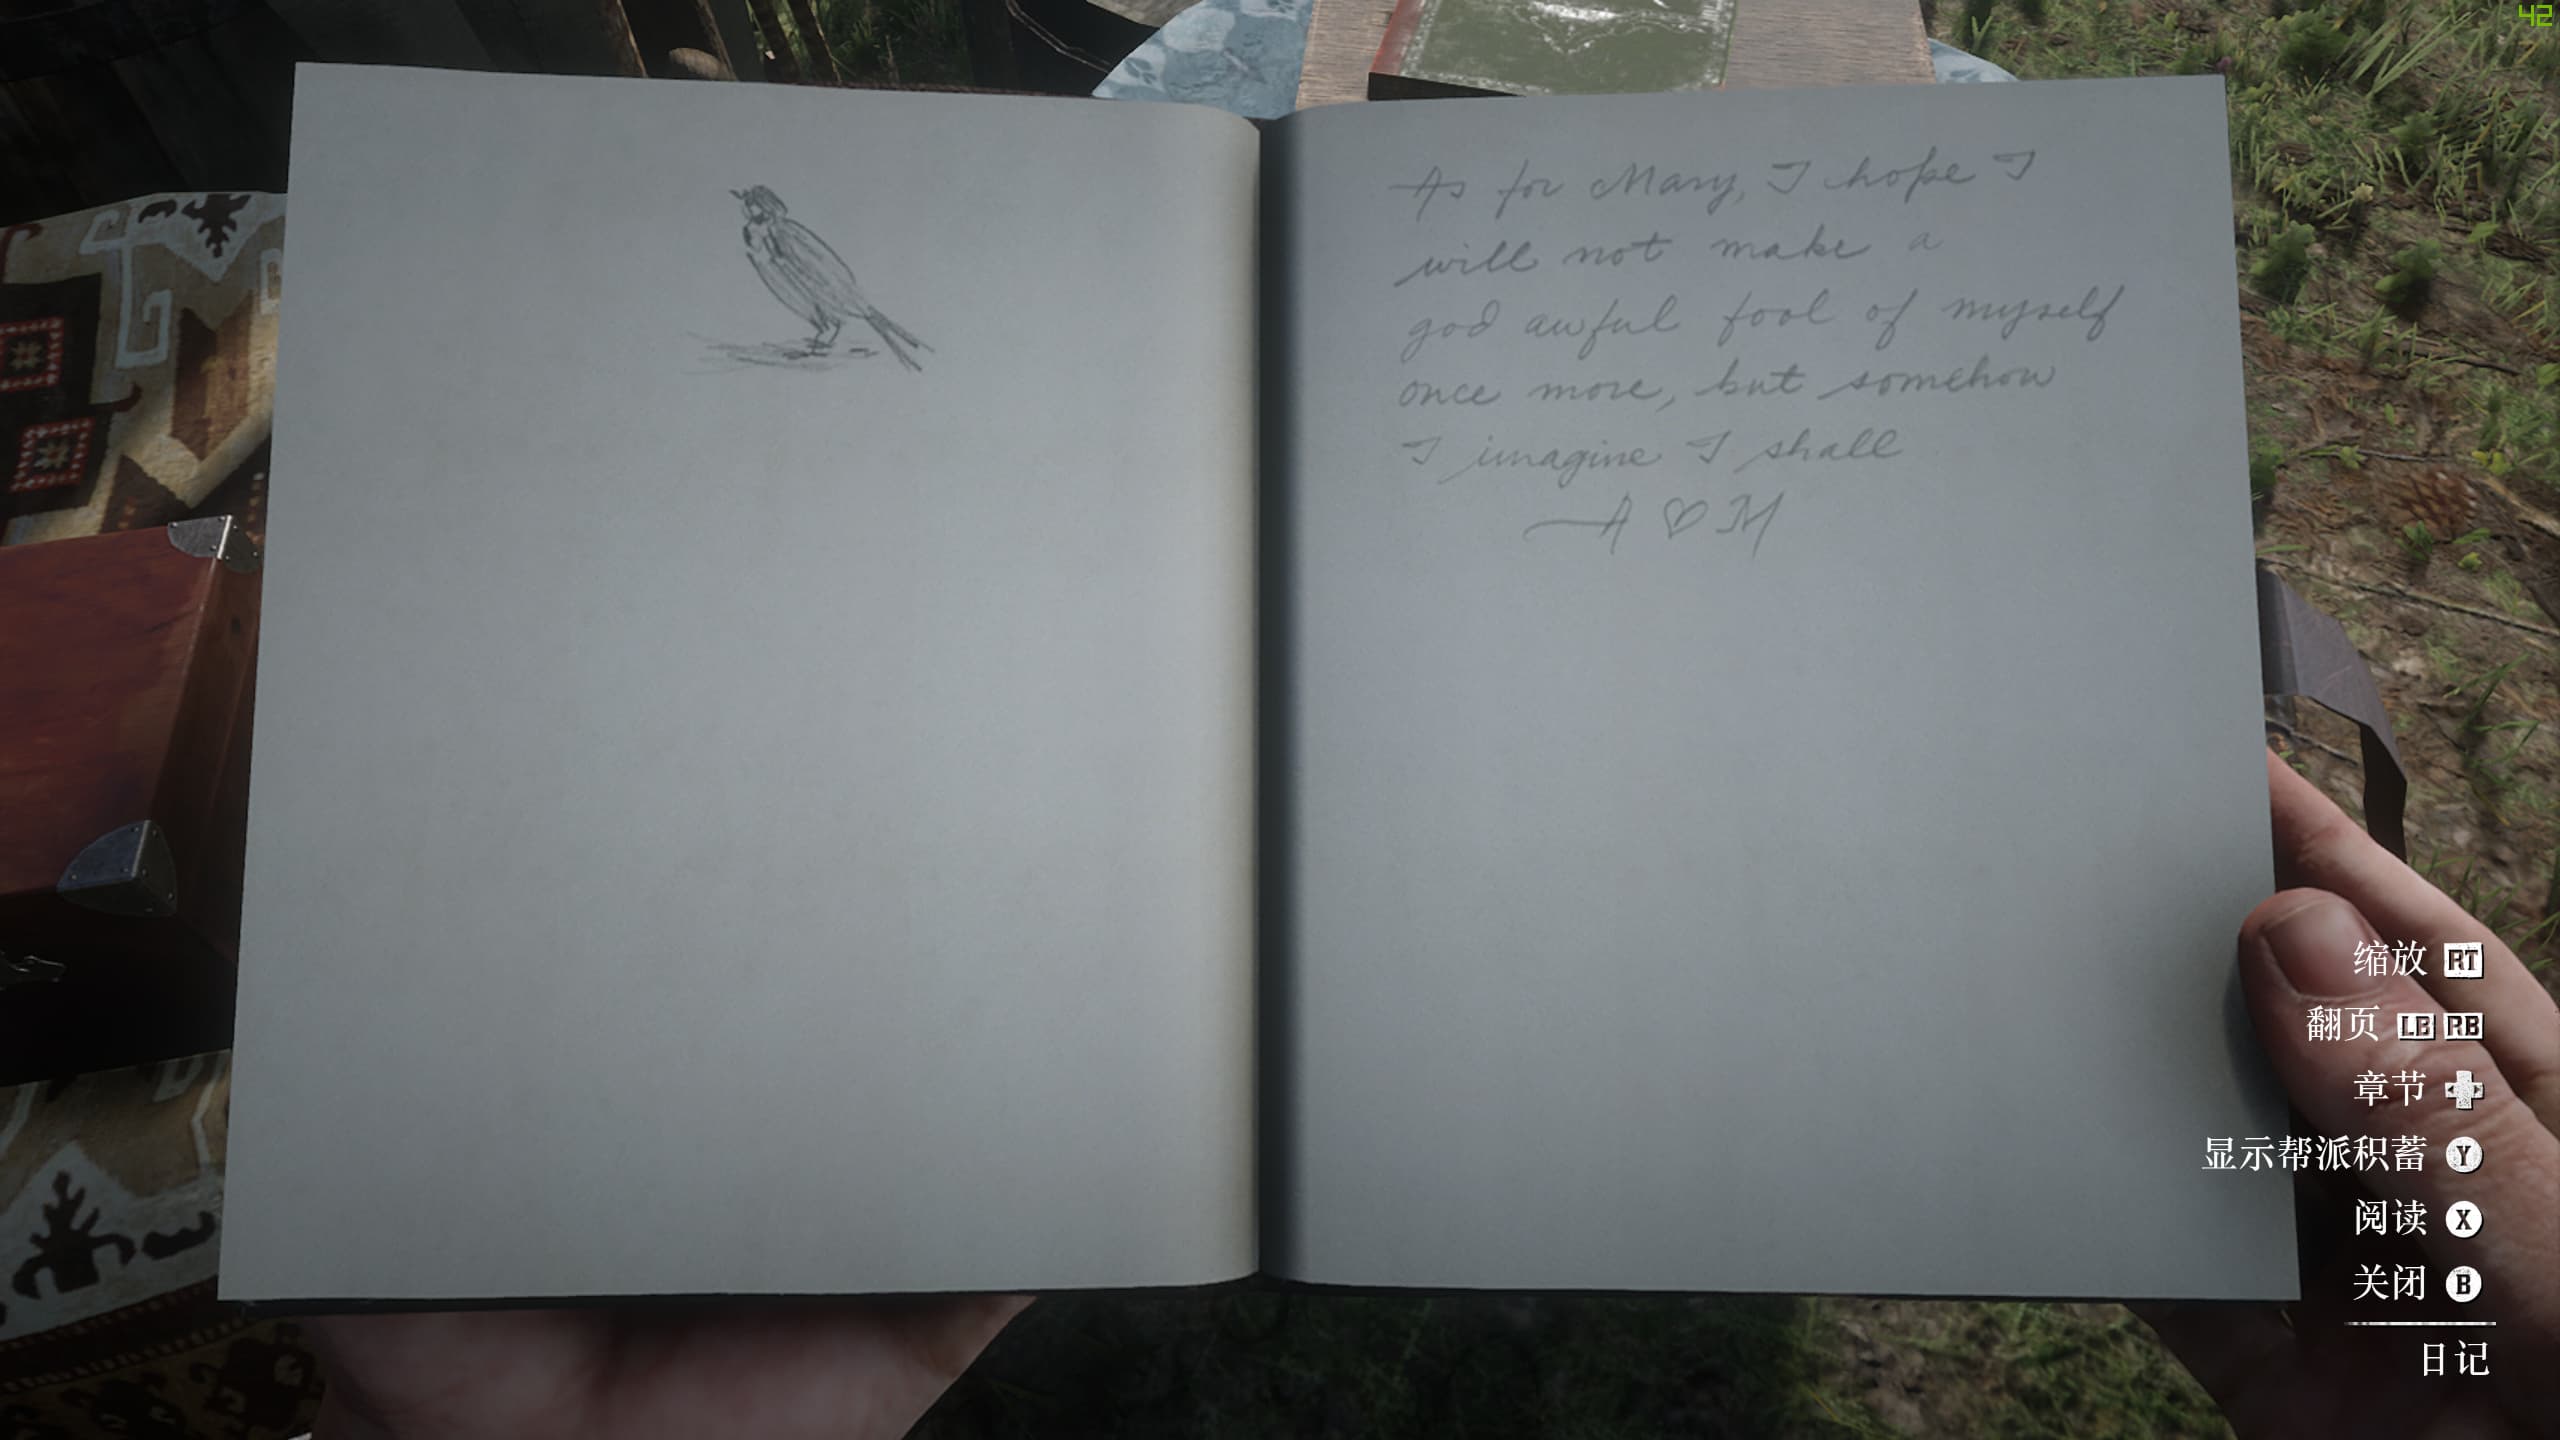 42
As for Mary, I hope I
will not make a
god awful fool of myself
once more, but somehow
I imagine I shall
—A ♡ M
缩放 RT
翻页 LB RB
章节
显示帮派积蓄 Y
阅读 X
关闭 B
日记